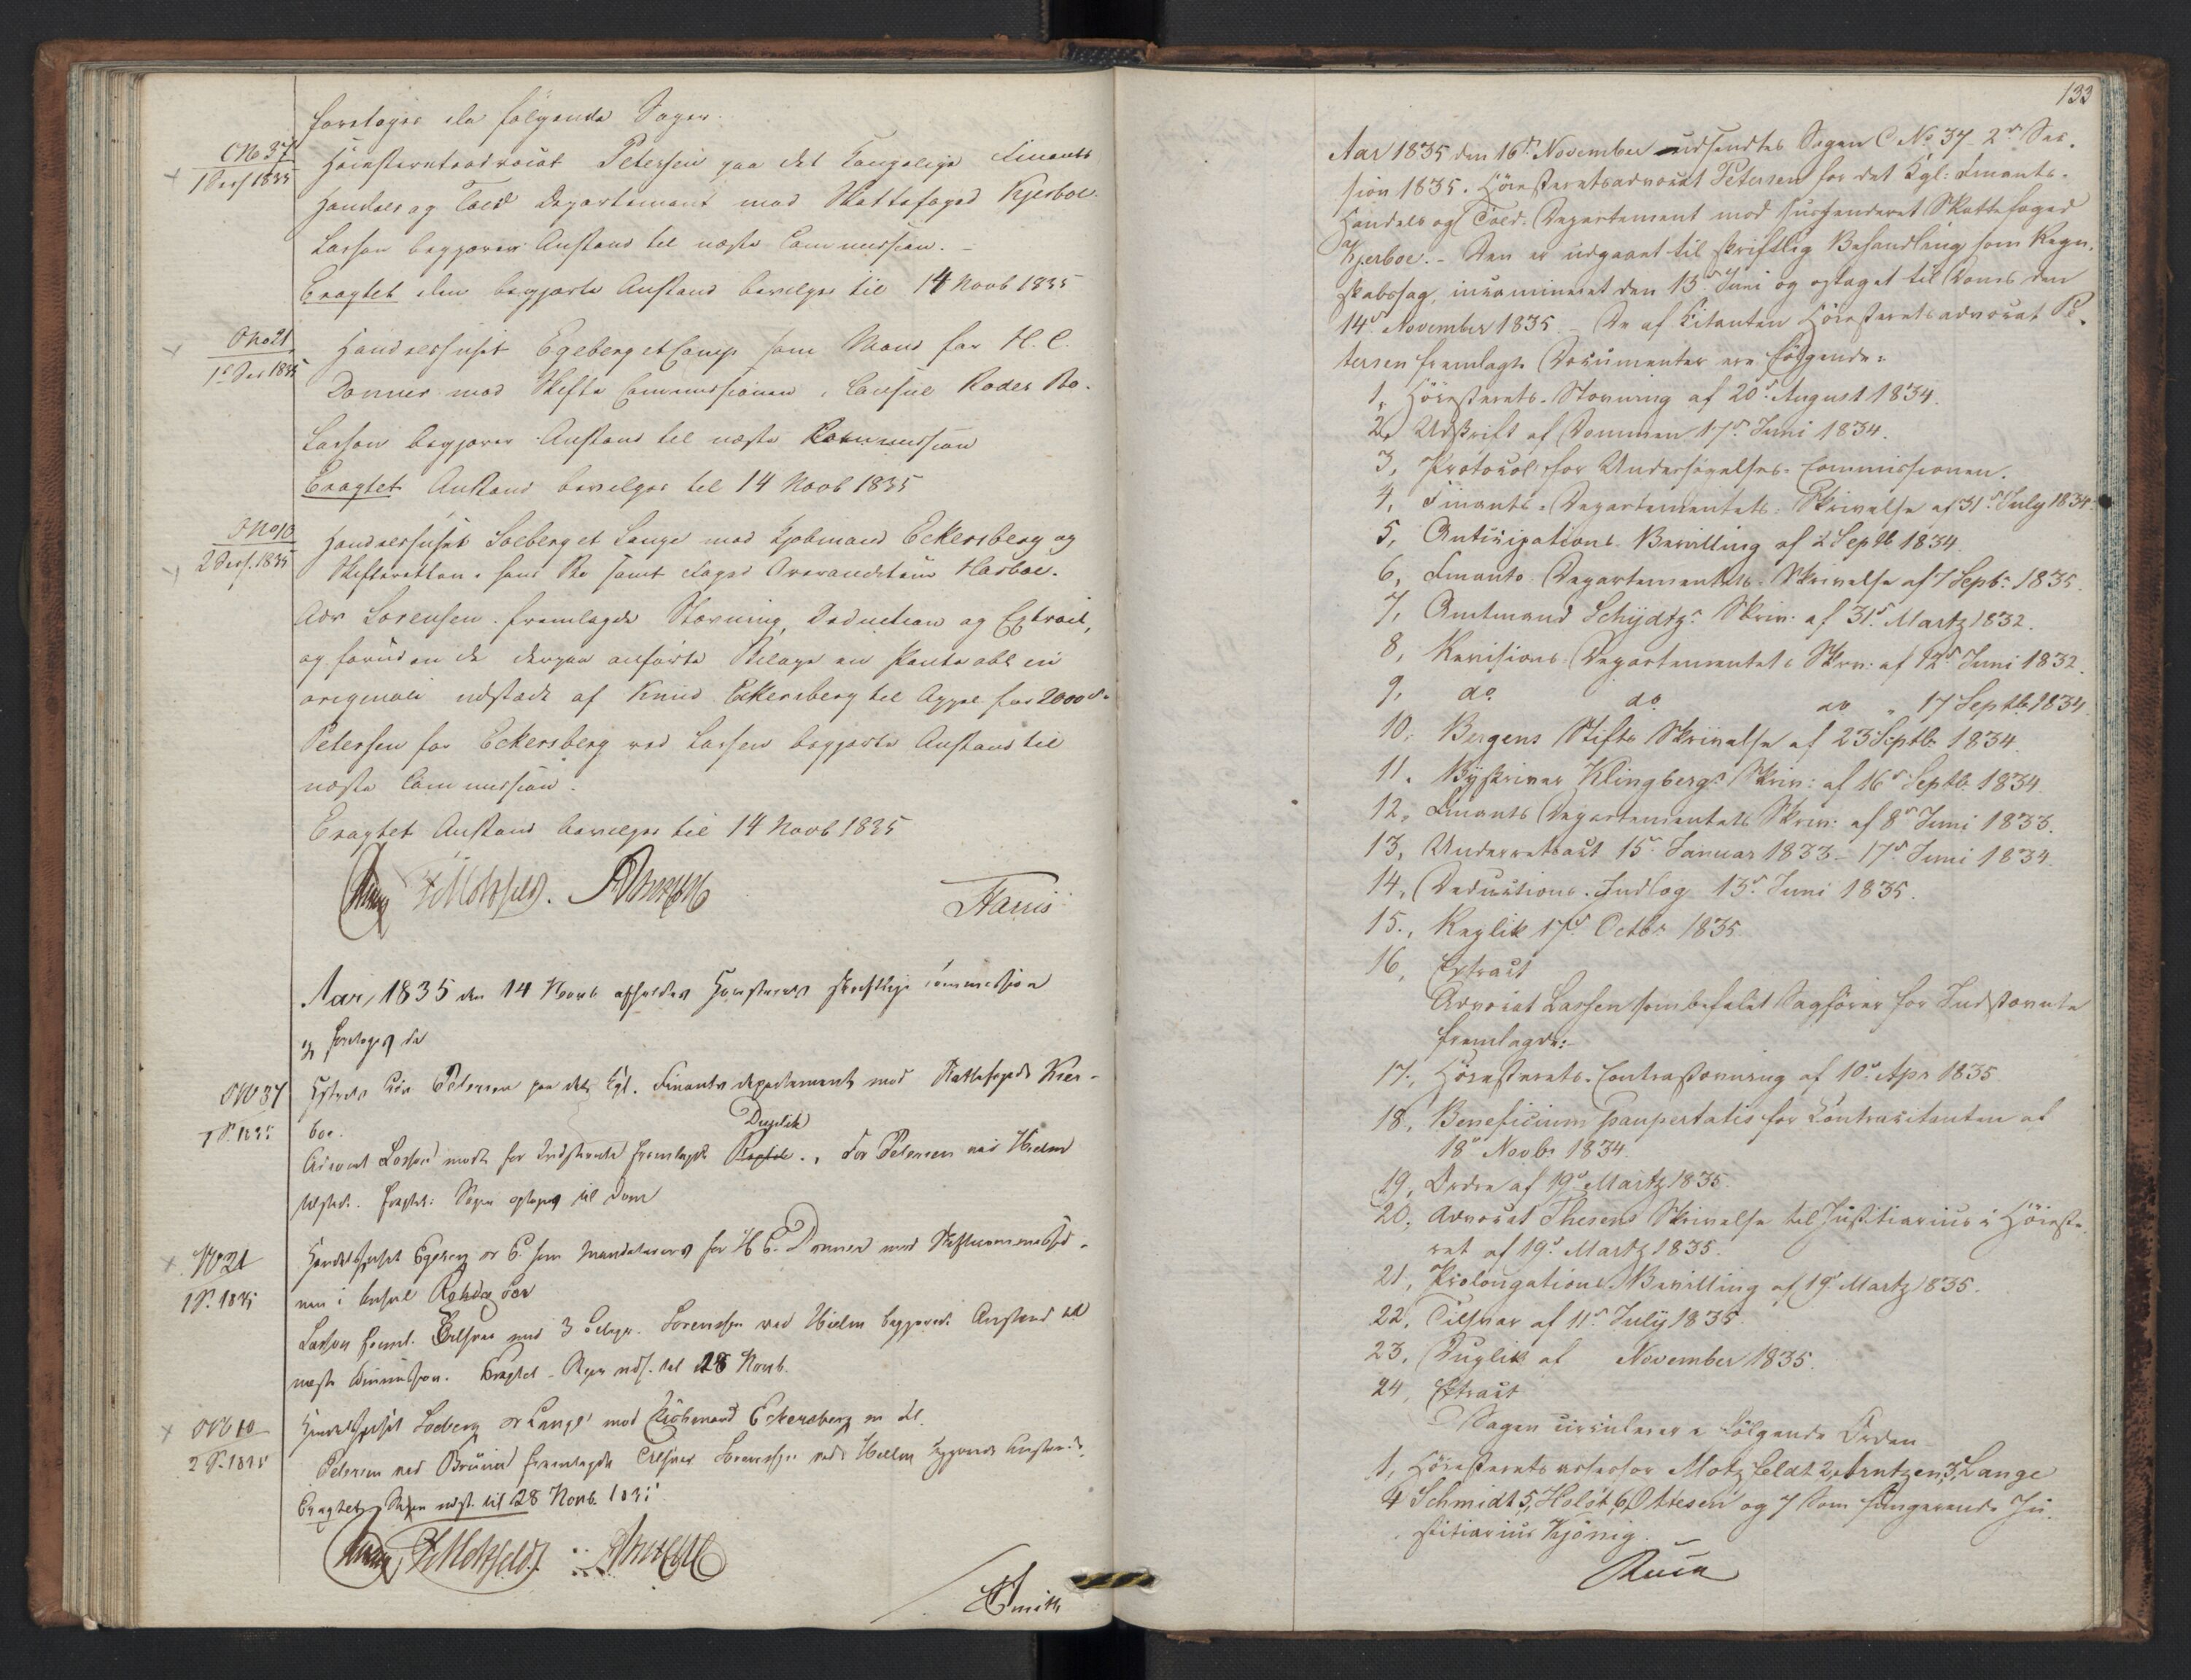 foretoges da følgende Sager.
C No 37
1 Sess 1835
Høiesteretsadvocat Petersen paa det Kongelige Finants
Handels og Told Departement mod Skattefoged Kjerboe.
Lassen begjærer Anstand til næste Commission. –
Eragtet den begjærte Anstand bevilges til 14 Novb 1835
C No 21
1 Ses 1835
Handelshuset Egeberg et Comp som Mand for H. C.
Donner mod Skifte Commissionen i Consul Rodes Bo.
Lasson begjærer Anstand til næste Commission
Eragtet Anstand bevilges til 14 Novb 1835
C No 10
2 Sess. 1835
Handelshuset Soeberg et Lange mod Kjøbmand Eckersberg og
Skifteretten i hans Bo samt Foged Harboe.
Adv Sorensen fremlagde Stævning, Deduction og Extract,
og foruden de derpaa anførte Bilage en Pante obl in
originali udstædt af Knud Eckersberg til Appel for 2000
Petersen for Eckersberg ved Lassen begjærte Anstand til
næste Commission.
Eragtet Anstand bevilges til 14 Novb 1835
F Motzfeldt.
Aar 1835 den 14 Novb afholdtes Høiesterets skriftlige Commission
og foretoges da
C No 37
1 S. 1835
Petersen paa det Kgl. Finants departements mod Skattefoged Kier-
boe.
Duplik
Advocat Lasson mødte for Indstevnte fremlagde Replik. , for Petersen var Hielm
tilstede. Eragtet: Sagen optages til Dom
No 21
1 S. 1835
Handelshuset Egeberg & C. som Mandatarius for H C. Donner mod Skiftecommissio-
nen i Consul Rohdes Boe
Lasson freml. Tilsvar med 3 Bilage. Sorenssen ved Hielm begjærede Anstand til
næste Commission. Eragtet – Sagen uds. til 28 Novb.
C No 10
2 S. 1835
Handelshuset Soeberg & Lange mod Kiöbmand Eckersberg m fl.
Petersen ved Bruun fremlagde Tilsvar Sorenssen ved Hielm begjærede Anstand.
Eragtet, Sagen uds. til 28 Novb. 1835
F Motzfeldt.
Smith
133
Aar 1835 den 16de November udsendtes Sagen C No 37 2den Ses-
sion 1835. Høiesteretsadvocat Petersen for det Kgl: Finants-
Handels og Told-Departement mod suspenderet Skattefoged
Kjerboe. – Den er udgaaet til skriftlig Behandling som Regn-
skabssag, incamineret den 13de Juni og optaget til Doms den
14de November 1835. – De af Citanten Høiesteretsadvocat Pe-
tersen fremlagte Documenter ere følgende:
1, Höiesterets-Stevning af 20de August 1834.
2, Udskrift af Dommen 17de Juni 1834.
3, Protocol for Undersögelses-Commissionen.
4, Finants-Departementets Skrivelse af 31de July 1834.
5, Anticipations-Bevilling af 2 Septb 1834.
6, Finants Departementets Skrivelse af 7 Septbr 1835.
7, Amtmand Schydtz's Skriv: af 31de Martz 1832.
8, Revisions Departementets Skriv: af 12de Juni 1832.
9, do do av „ 17 Septbr 1834.
10, Bergens Stifts Skrivelse af 23 Septbr 1834.
11, Byskriver Klingbergs Skriv: af 16de Septbr 1834.
12, Finants Departementets Skriv: af 8de Juni 1833.
13, Underretsact 15de Januar 1833 – 17de Juni 1834.
14, Deductions-Indlæg 13de Juni 1835.
15., Replik 17de Octbr 1835.
16, Extract
Advocat Lassen som befalet Sagfører for Indstævnte
fremlagde:
17., Høiesterets-Contrastævning af 10de Apr 1835.
18, Beneficium paupertatis for Contracitanten af
18de Novbr 1834.
19, Ordre af 19de Martz 1835.
20, Advocat Thesens Skrivelse til Justitiarius i Höieste-
ret af 19de Martz 1835.
21, Prolongations Bevilling af 19de Martz 1835.
22, Tilsvar af 11de July 1835.
23, Duplik af November 1835.
24, Extract
Sagen circulerer i følgende Orden
1, Höiesterets assessor Motzfeldt 2, Arntzen, 3, Lange
4 Schmidt 5, Holst, 6, Ottesen og 7 som fungerende Ju-
stitiarius Kjönig.